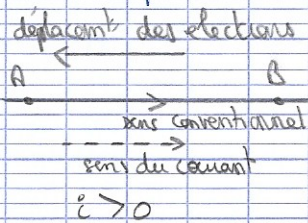 déplacemt des electrons
A B
sens conventionnel
sens du courant
i > 0